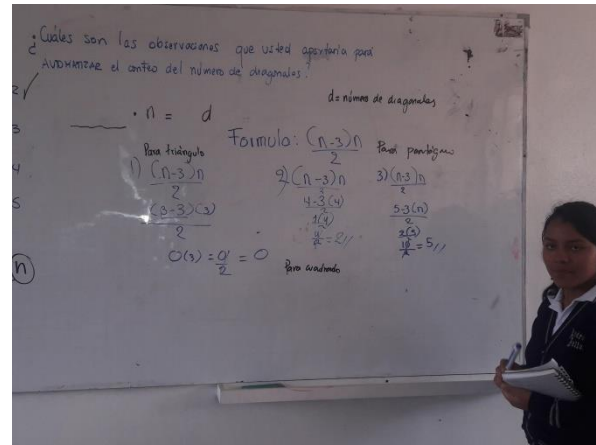 ¿Cuáles son las observaciones que usted aportaría para
AUTOMATIZAR el conteo del número de diagonales?
d= número de diagonales
• n = d
Formula: (n-3)n
2
Para triángulo
1) (n-3)n
2
(3-3)(3)
2
0(3) = 0/2 = 0
2) (n-3)n
2
4-3(4)
2
1(4)
2
4/2 = 2//
Para cuadrado
Para
3) (n-3)n
2
5-3(n)
2
2(5)
10/2 = 5//
2
3
4
5
n